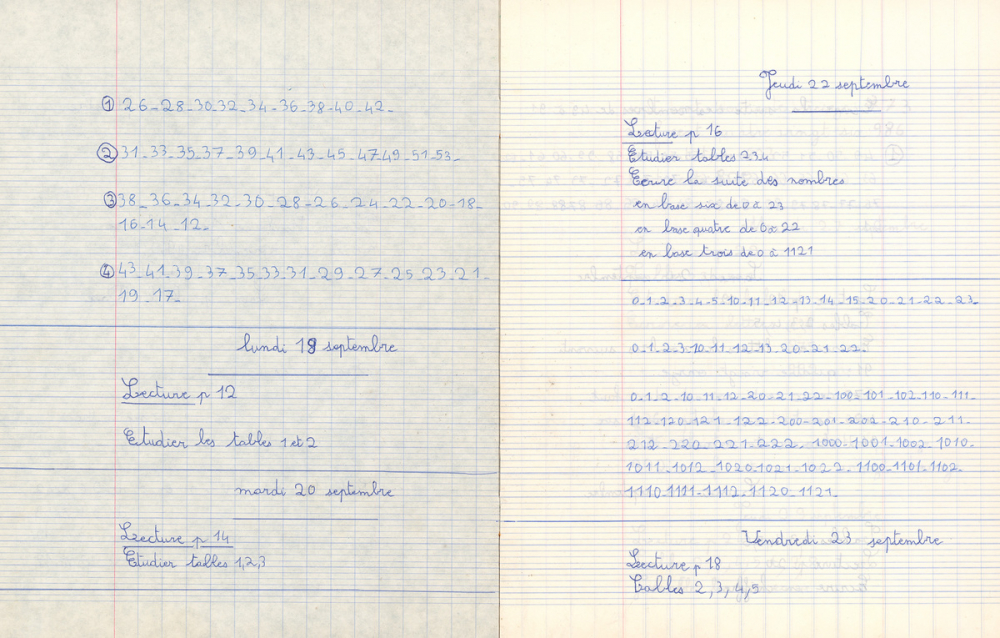 ① 26-28-30-32-34-36-38-40-42-
② 31-33-35-37-39-41-43-45-47-49-51-53-
③ 38-36-34-32-30-28-26-24-22-20-18-
16-14-12-
④ 43-41-39-37-35-33-31-29-27-25-23-21-
19-17-
lundi 19 septembre
Lecture p 12
Etudier les tables 1 et 2
mardi 20 septembre
Lecture p 14
Etudier tables 1,2,3
Jeudi 22 septembre
Lecture p 16
Etudier tables 2,3,4
Ecrire la suite des nombres
en base six de 0 à 23
en base quatre de 0 à 22
en base trois de 0 à 1121
0-1-2-3-4-5-10-11-12-13-14-15-20-21-22-23-
0-1-2-3-10-11-12-13-20-21-22-
0-1-2-10-11-12-20-21-22-100-101-102-110-111-
112-120-121-122-200-201-202-210-211-
212-220-221-222-1000-1001-1002-1010-
1011-1012-1020-1021-1022-1100-1101-1102-
1110-1111-1112-1120-1121-
Vendredi 23 septembre
Lecture p 18
Tables 2,3,4,5